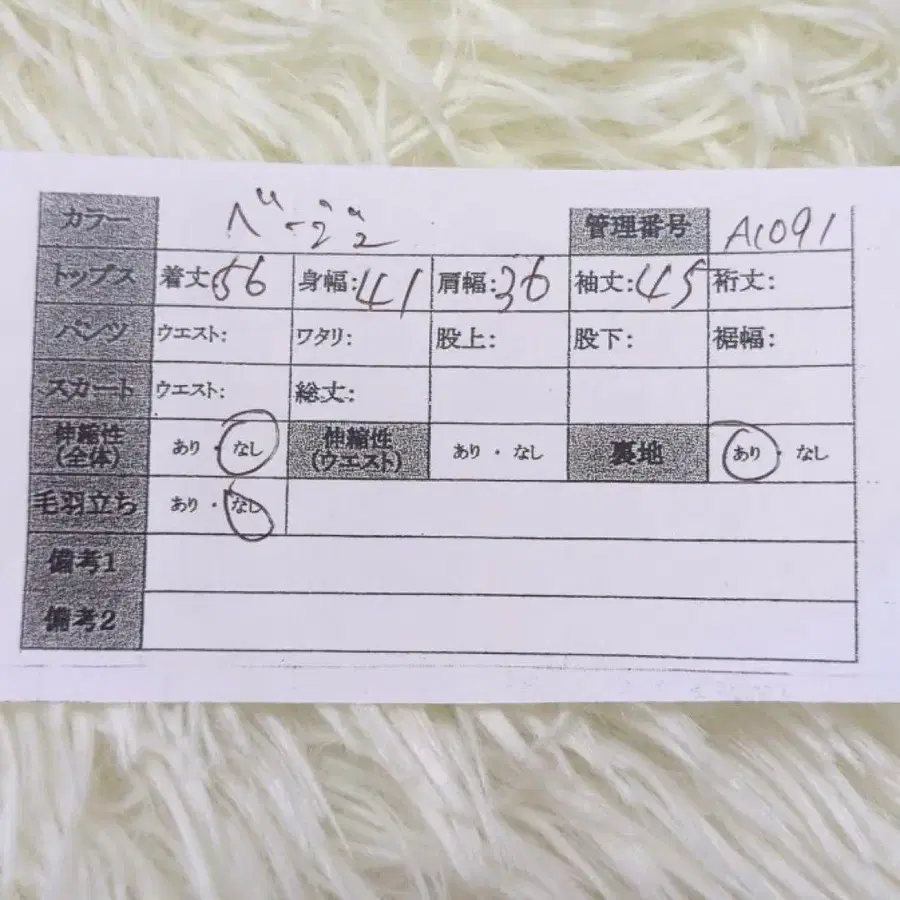 カラー ベージュ 管理番号 A1091
トップス 着丈:56 身幅:41 肩幅:36 袖丈:45 裄丈:
パンツ ウエスト: ワタリ: 股上: 股下: 裾幅:
スカート ウエスト: 総丈:
伸縮性(全体) あり・なし 伸縮性(ウエスト) あり・なし 裏地 あり・なし
毛羽立ち あり・なし
備考1
備考2